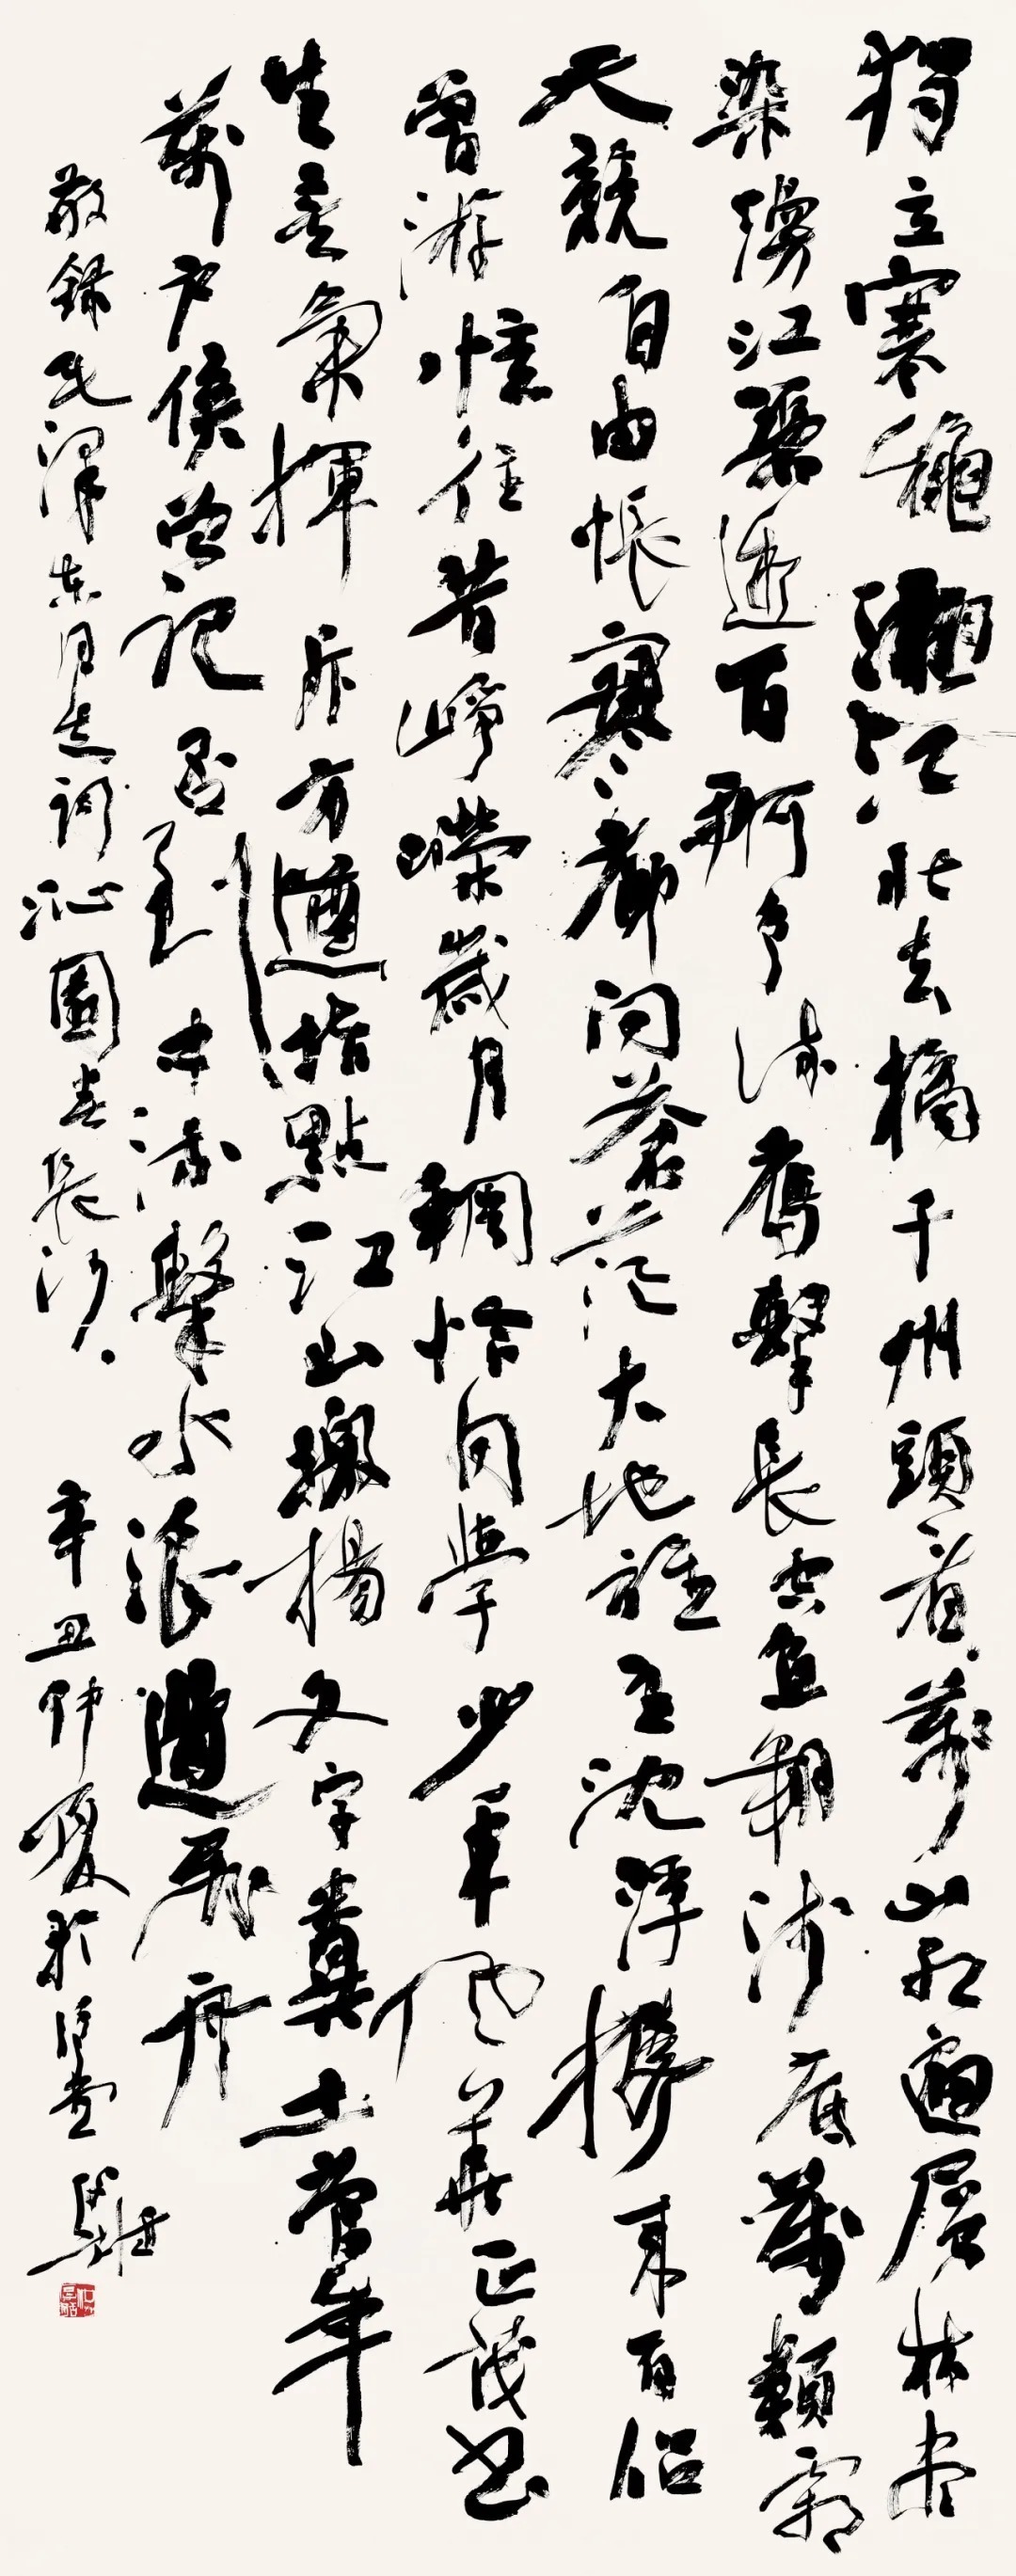 獨立寒穐湘江北去橘子州頭看萬山紅遍層林盡
染漫江碧透百舸爭流鷹擊長空魚翔淺底萬類霜
天競自由悵寥廓問蒼茫大地誰主沈浮攜來百侶
曾游憶往昔崢嶸歲月稠恰同學少年風華正茂書
生意氣揮斥方遒指點江山激揚文字糞土當年
萬戶侯曾記否到中流擊水浪遏飛舟
敬錄毛澤東同志詞沁園春長沙 辛丑仲夏於